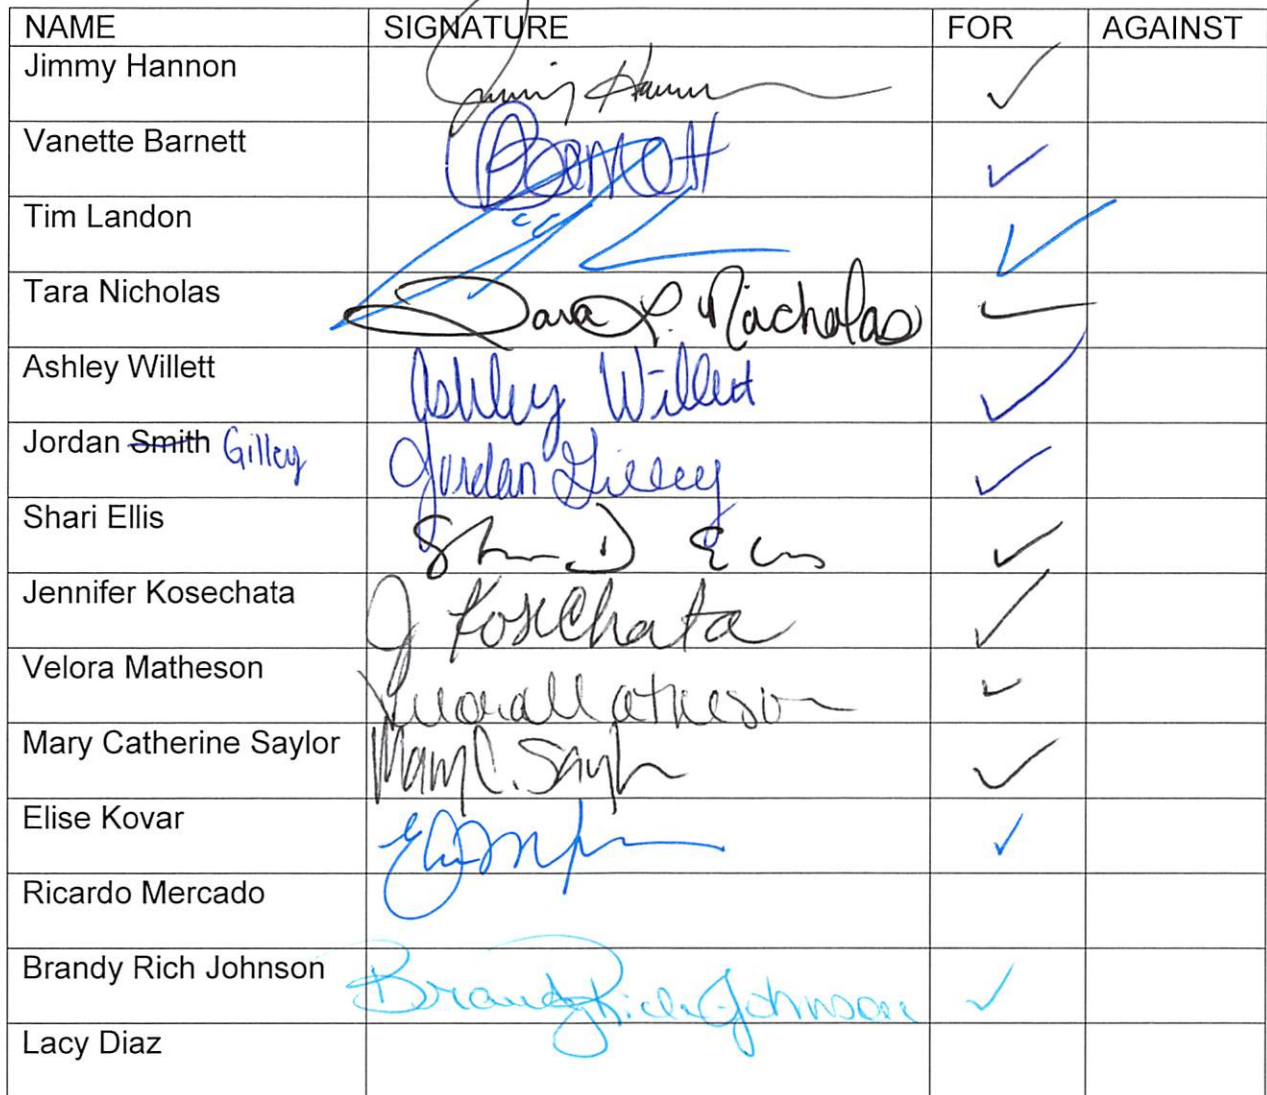 NAME SIGNATURE FOR AGAINST
Jimmy Hannon ✓
Vanette Barnett Barnett ✓
Tim Landon ✓
Tara Nicholas Tara L. Nicholas ✓
Ashley Willett Ashley Willett ✓
Jordan Smith Gilley Jordan Gilley ✓
Shari Ellis ✓
Jennifer Kosechata J Kosechata ✓
Velora Matheson Velora Matheson ✓
Mary Catherine Saylor Mary C. Saylor ✓
Elise Kovar ✓
Ricardo Mercado
Brandy Rich Johnson Brandy Rich Johnson ✓
Lacy Diaz